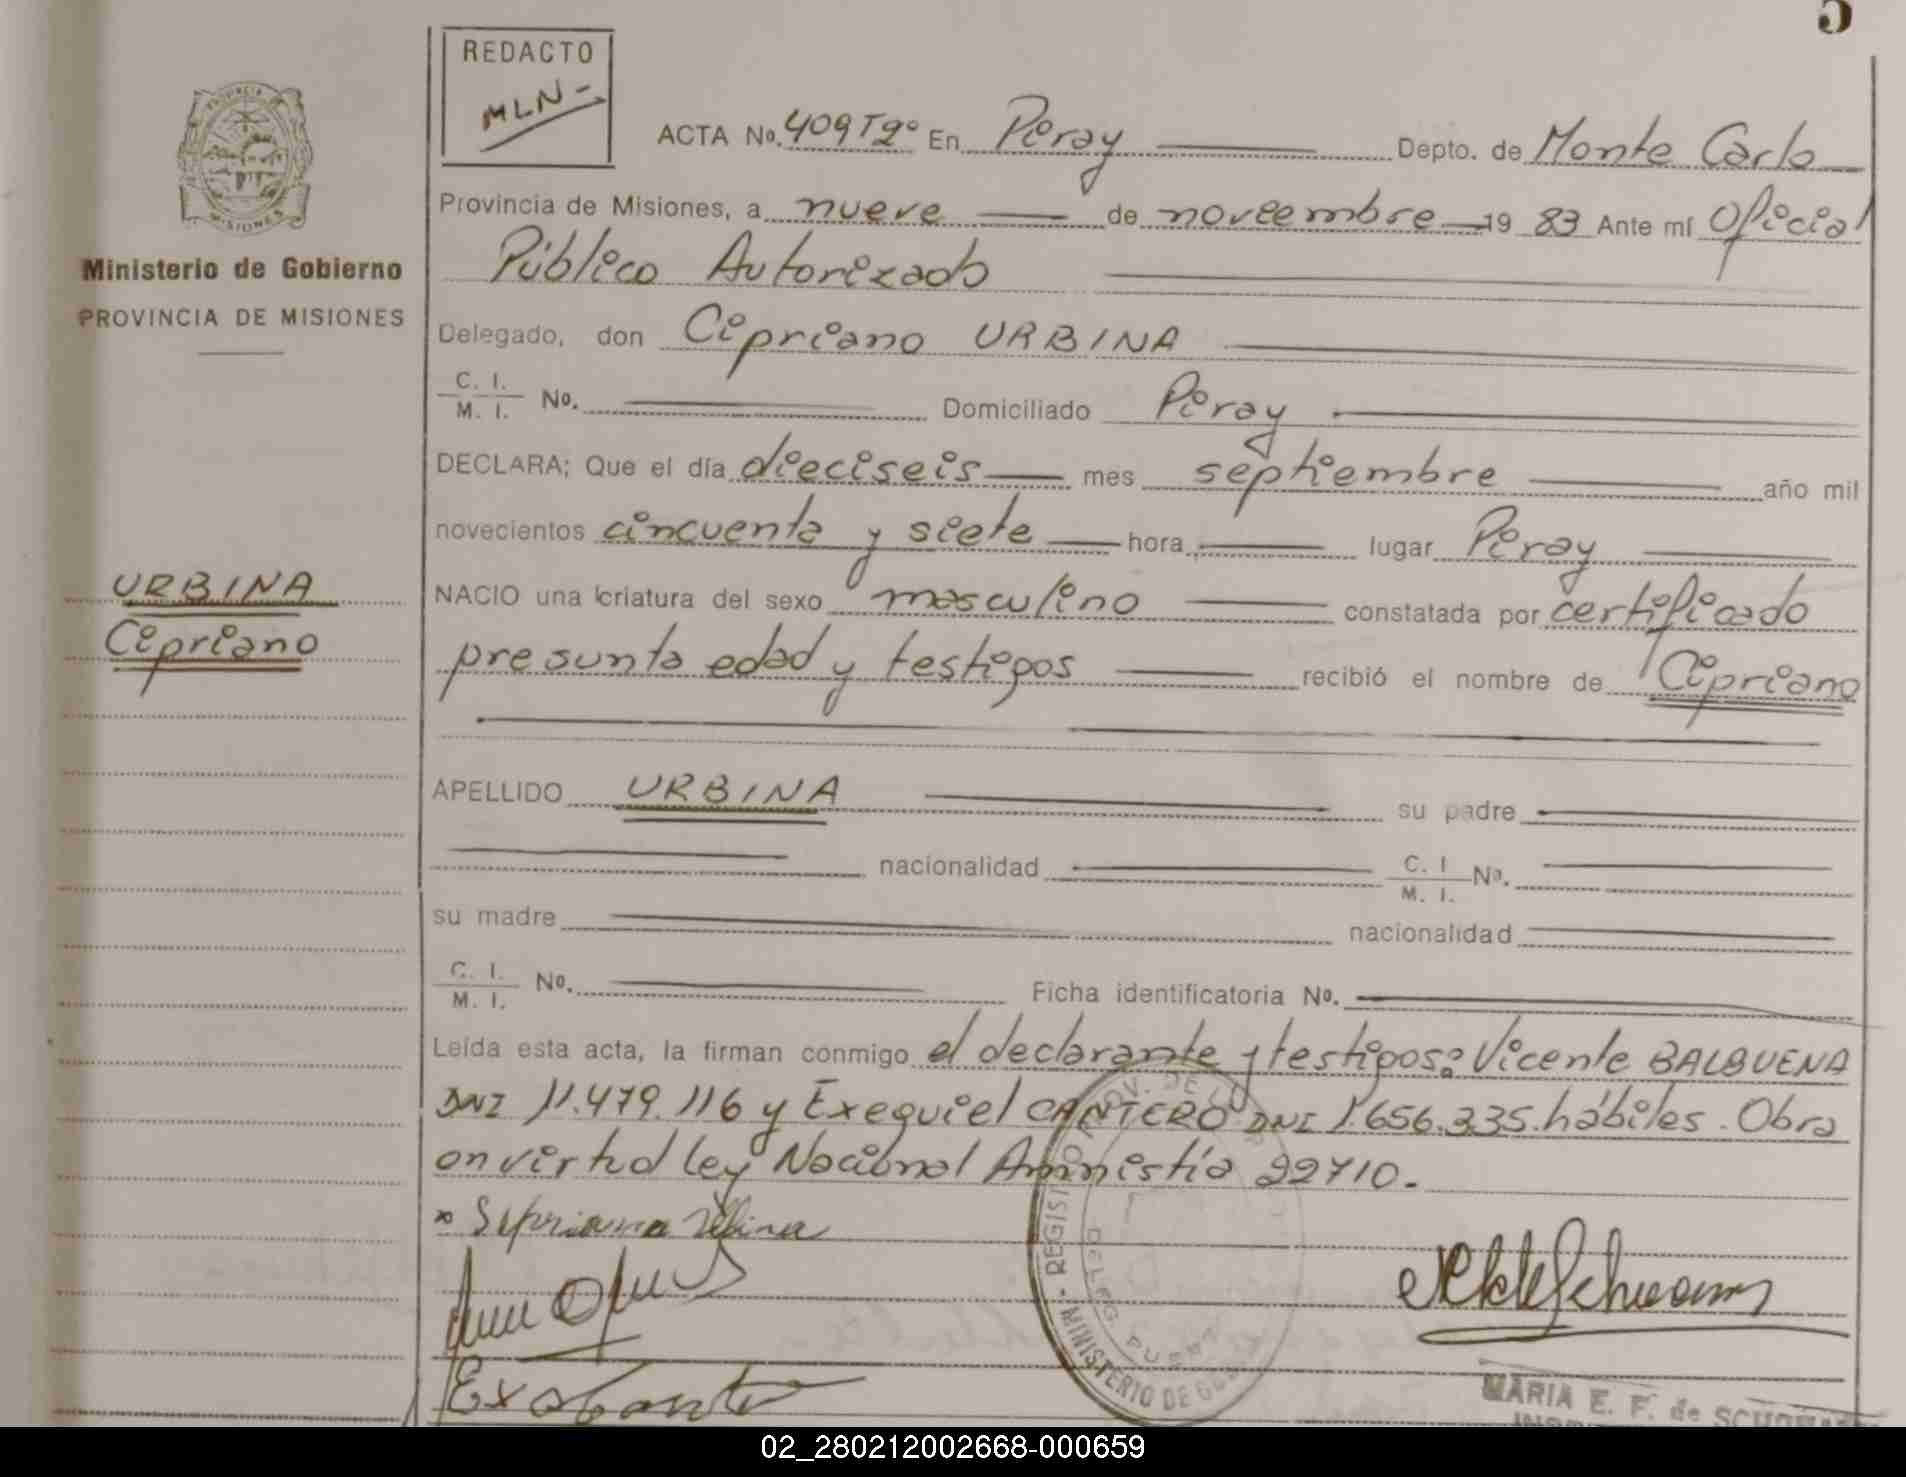 5
REDACTO
MLN-
PROVINCIA DE MISIONES
Ministerio de Gobierno
PROVINCIA DE MISIONES
URBINA
Cipriano
ACTA Nº. 409 Tº2º En Piray Depto. de Monte Carlo
Provincia de Misiones, a nueve de noviembre 19 83 Ante mí Oficial
Público Autorizado
Delegado, don Cipriano URBINA
C. I. / M. I. Nº. Domiciliado Piray
DECLARA; Que el día dieciseis mes septiembre año mil
novecientos cincuenta y siete hora lugar Piray
NACIO una criatura del sexo masculino constatada por certificado
presunta edad y testigos recibió el nombre de Cipriano
APELLIDO URBINA su padre
nacionalidad C. I / M. I. Nº.
su madre nacionalidad
C. I. / M. I. Nº. Ficha identificatoria Nº.
Leída esta acta, la firman conmigo el declarante y testigos: Vicente BALBUENA
DNI 11.479.116 y Exequiel CANTERO DNI 1.656.335. hábiles. Obra
en virtud ley Nacional Amnistía 22710.
REGISTRO PROV. DE
MINISTERIO DE GOB
DELEG
MARIA E. F. de
02_280212002668-000659